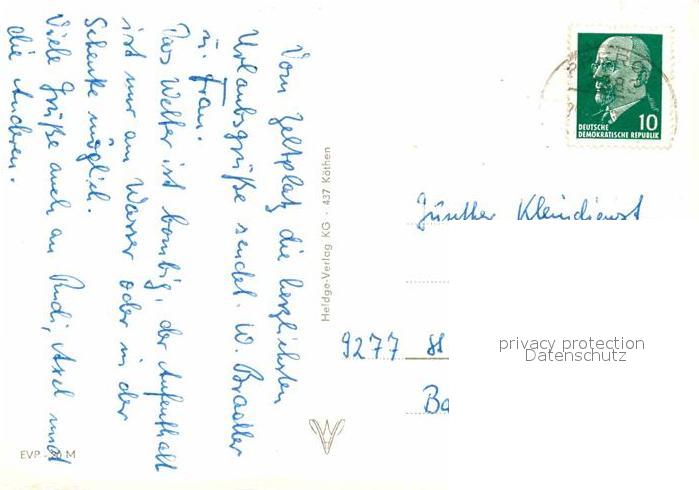 Vom Zeltplatz die herzlichsten
Urlaubsgrüße sendet. W. Bradler
u. Frau.
Das Wetter ist bombig, der Aufenthalt
ist nur am Wasser oder in der
Schenke möglich.
Viele Grüße auch an Rudi, Axel und
die Anderen.
EVP M
Heldge-Verlag KG · 437 Köthen
10
DEUTSCHE
DEMOKRATISCHE REPUBLIK
Günther Kleindienst
9277
privacy protection
Datenschutz
Ba